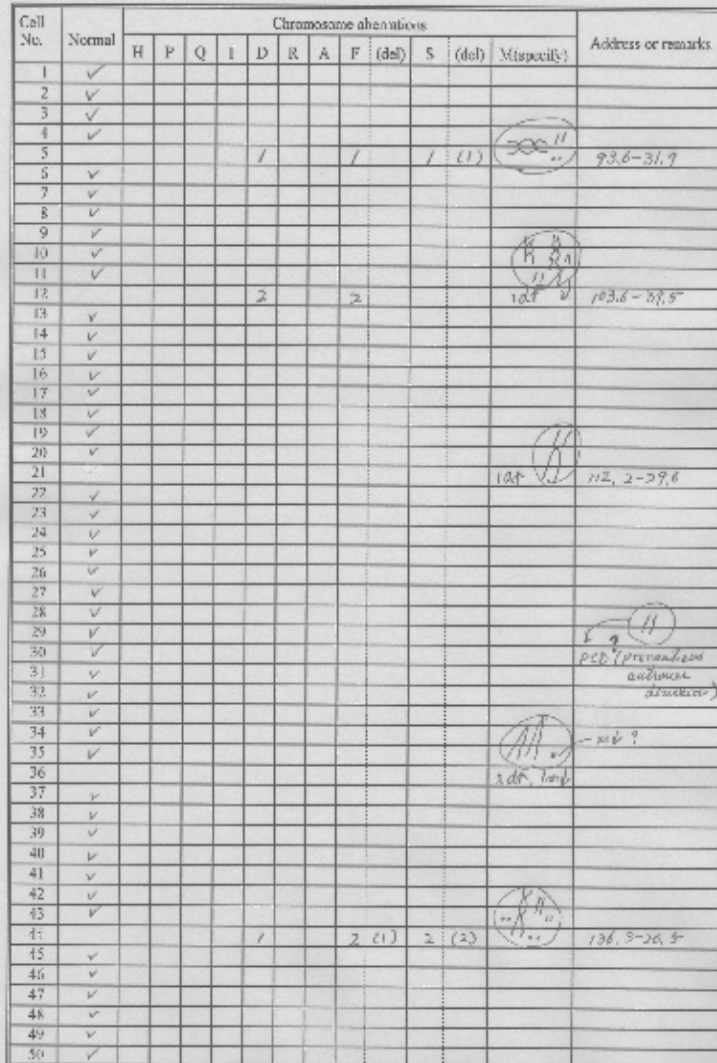 Cell No. Normal Chromosome aberrations Address or remarks
H P Q I D R A F (del) S (del) M(specify)
1 ✓
2 ✓
3 ✓
4 ✓
5 1 1 1 (1) 93.6-31.9
6 ✓
7 ✓
8 ✓
9 ✓
10 ✓
11 ✓
12 2 2 1dt
13 ✓
14 ✓
15 ✓
16 ✓
17 ✓
18 ✓
19 ✓
20 ✓
21 1dt
22 ✓
23 ✓
24 ✓
25 ✓
26 ✓
27 ✓
28 ✓
29 ✓
30 ✓ PCD
31 ✓
32 ✓
33 ✓
34 ✓
35 ✓
36
37 ✓
38 ✓
39 ✓
40 ✓
41 ✓
42 ✓
43 ✓
44 1 2 (1) 2 (2)
45 ✓
46 ✓
47 ✓
48 ✓
49 ✓
50 ✓